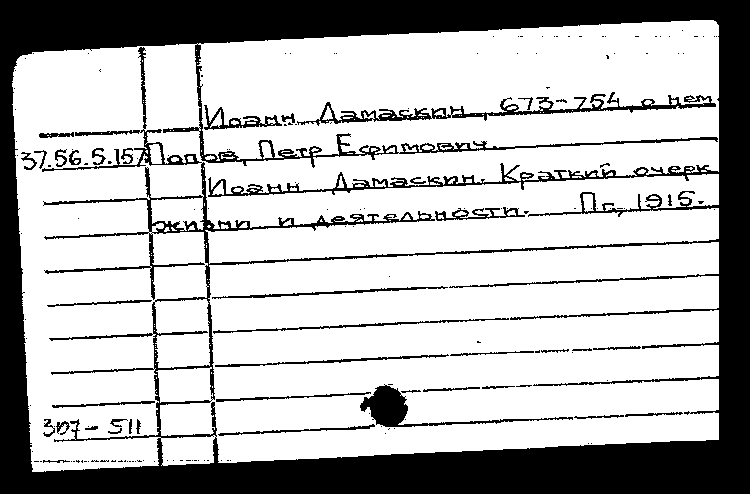 Иоанн Дамаскин, 673-754, о нем
37.56.5.157 Попов, Петр Ефимович.
Иоанн Дамаскин. Краткий очерк
жизни и деятельности. Пг., 1915.
307-511